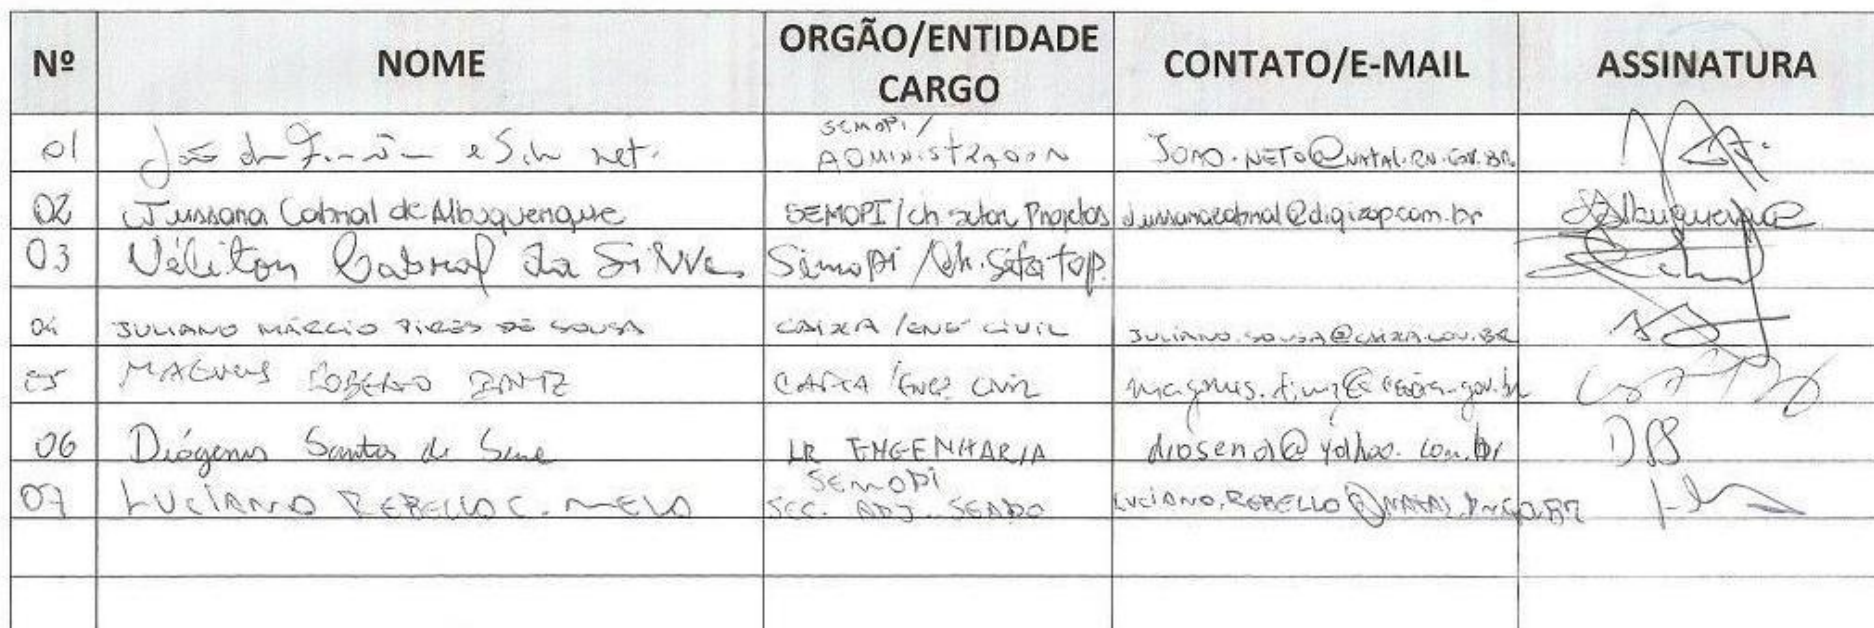 Nº NOME ORGÃO/ENTIDADE CARGO CONTATO/E-MAIL ASSINATURA
01 João e Silva Neto SEMOPI / ADMINISTRADOR JOAO.NETO@NATAL.RN.GOV.BR
02 Jussara Cabral de Albuquerque SEMOPI/ch setor Projetos jussaracabral@digizap.com.br JAlbuquerque
03 Véliton Cabral da Silva Semopi /Ch. Setor top.
04 JULIANO MÁRCIO PIRES DE SOUSA CAIXA /ENGº CIVIL JULIANO.SOUSA@CAIXA.GOV.BR
05 MAGNUS ROBERTO CAIXA /ENGº CIVIL
06 Diógenes Santos de Sena LR ENGENHARIA diosena@yahoo.com.br DSS
07 LUCIANO REBELLO C. MELO SEMOPI SEC. ADJ. LUCIANO.REBELLO@NATAL.RN.GOV.BR